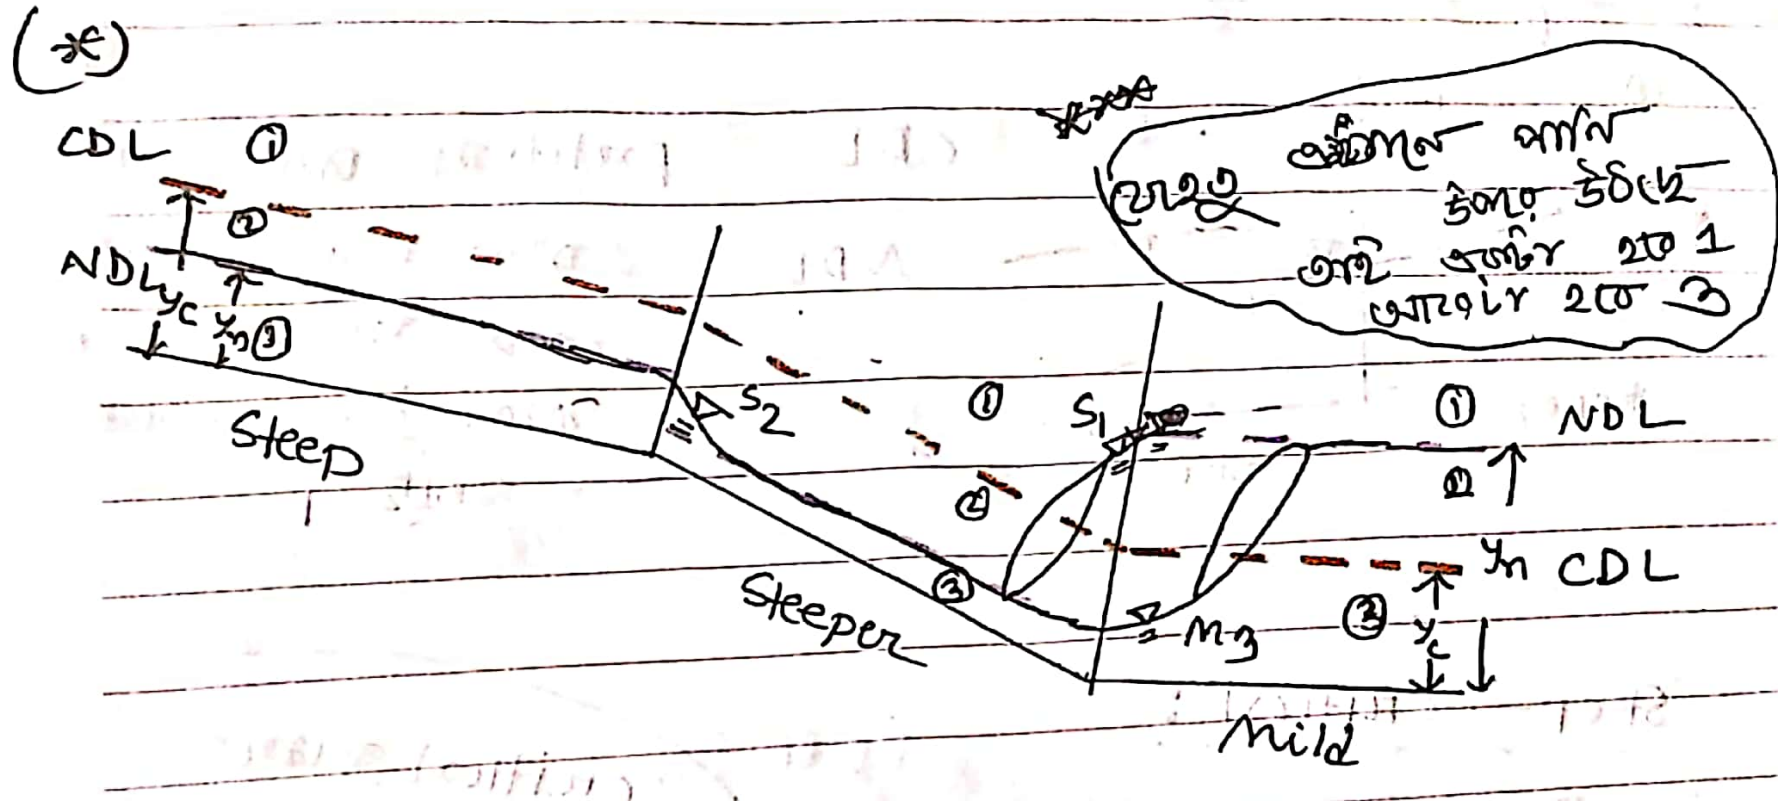 (*)
CDL ①
②
NDL
yc yn ③
Steep
S2
Steeper
①
②
③
S1
M3
① NDL
②
yn CDL
③ yc
Mild
যেহেতু পানি
উপরে উঠছে
তাই একটা হবে 1
আরেকটা হবে 3